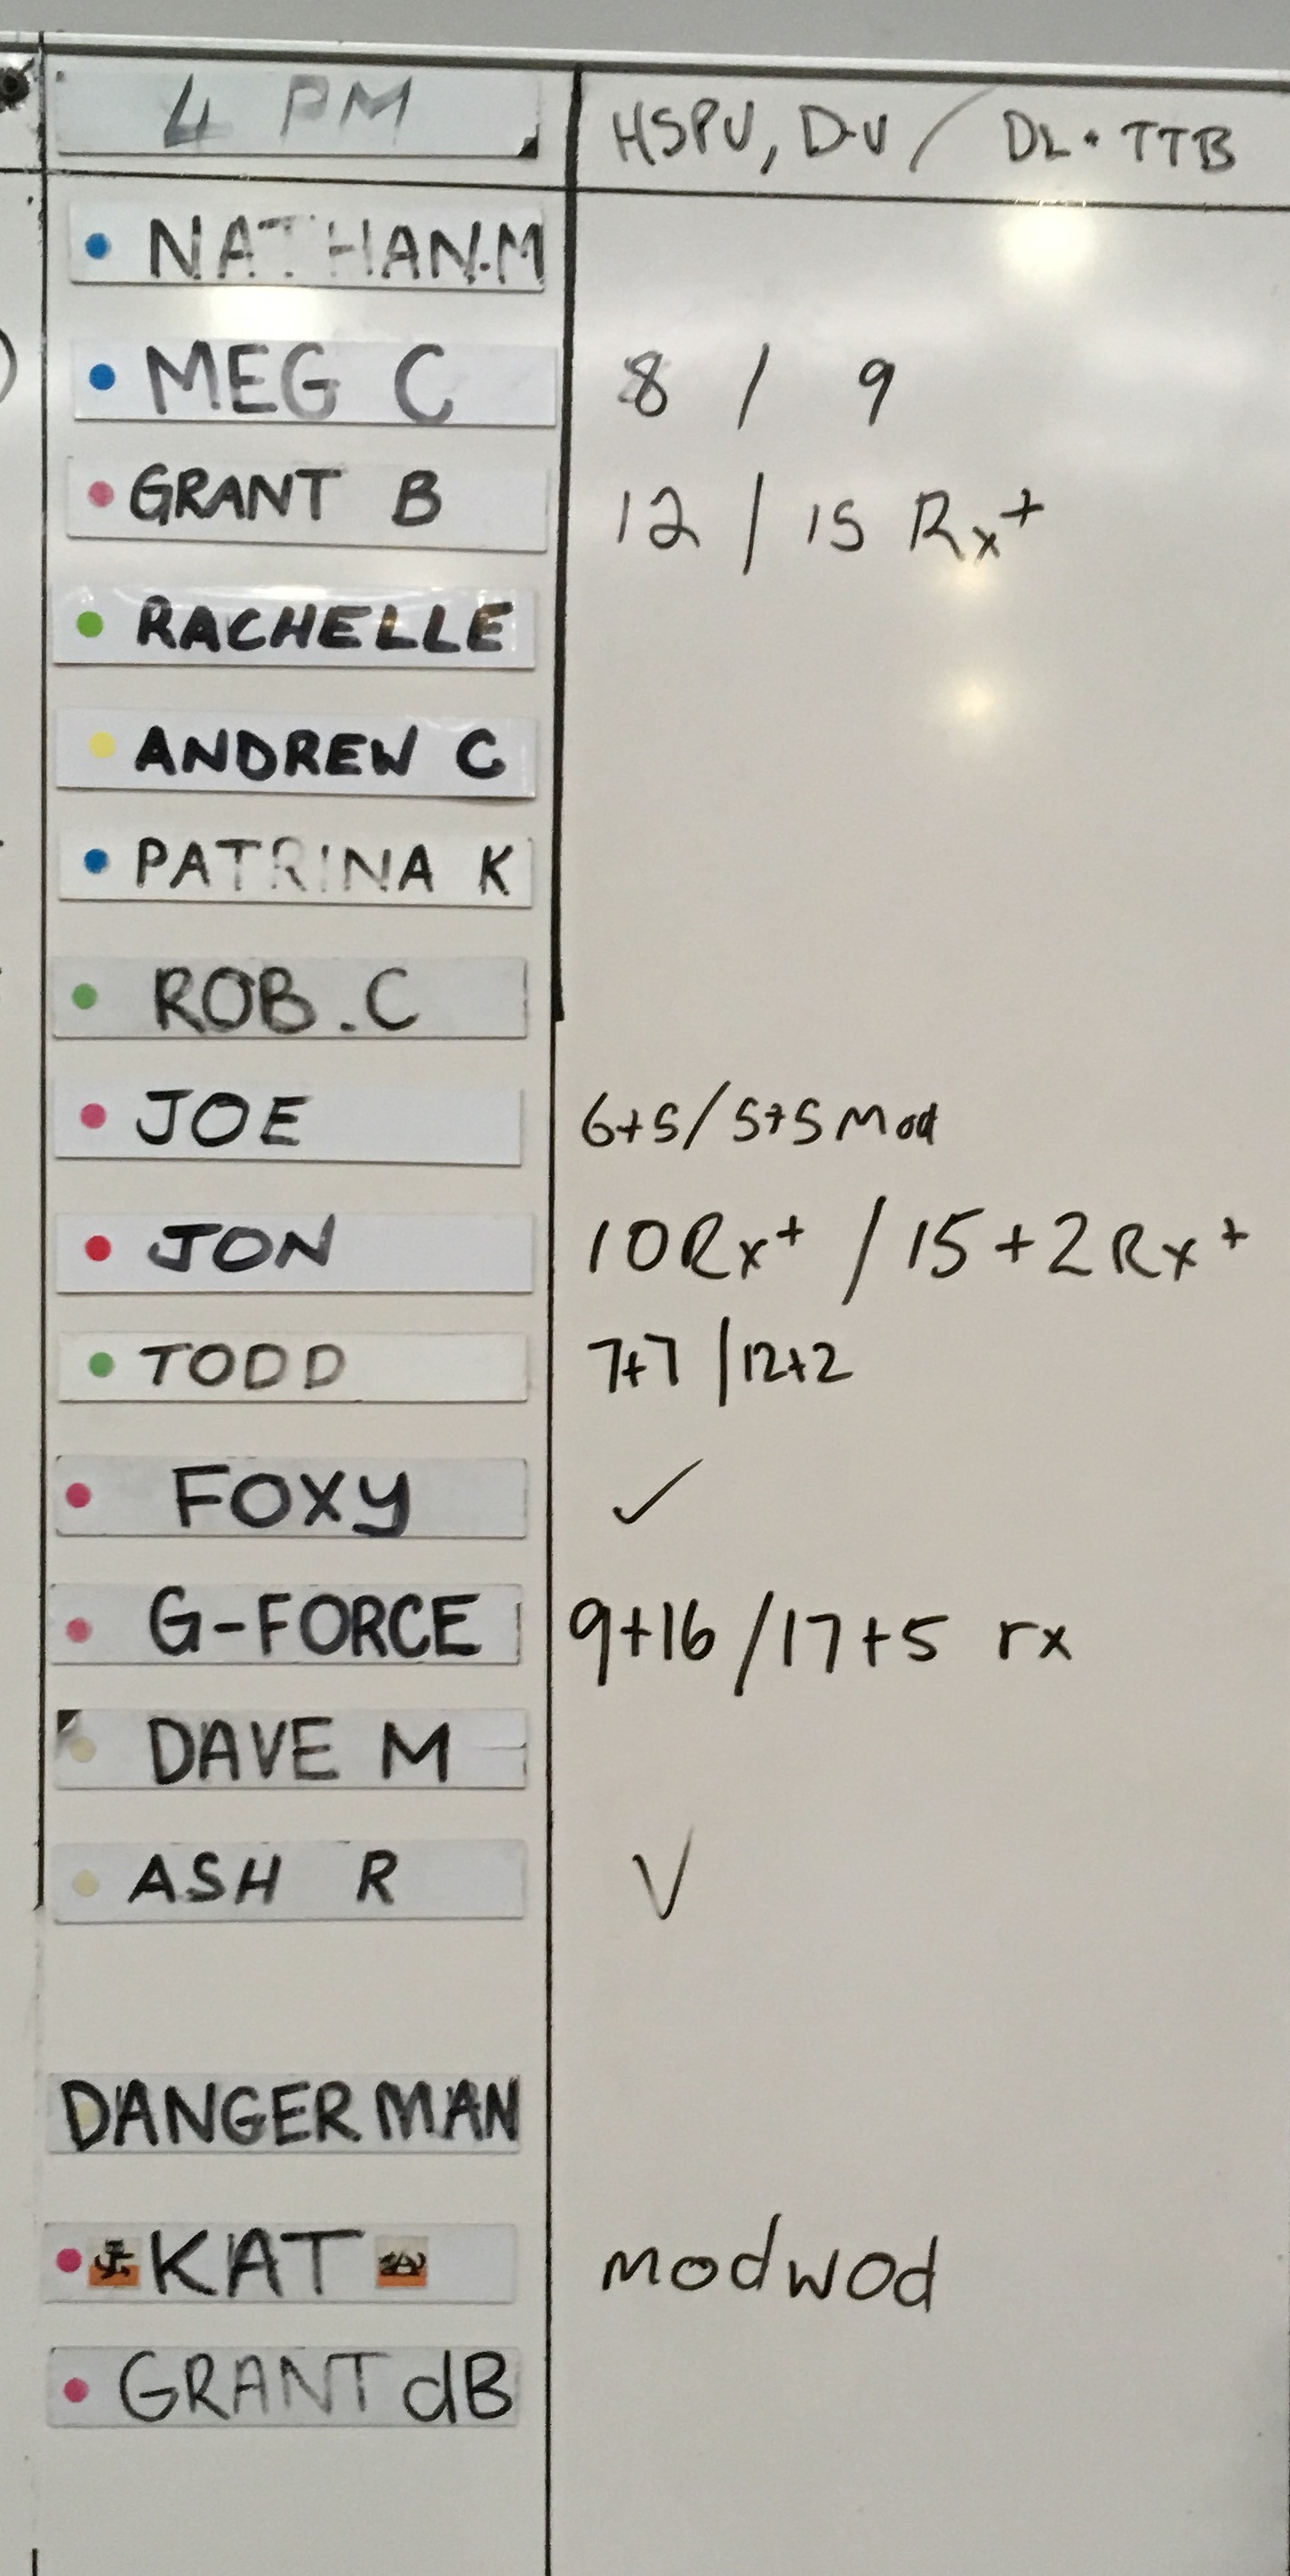 4 PM HSPU, D-U / DL · TTB
NATHAN.M
MEG C 8 / 9
GRANT B 12 / 15 Rx+
RACHELLE
ANDREW C
PATRINA K
ROB.C
JOE 6+5/5+5 Mod
JON 10 Rx+ / 15+2 Rx+
TODD 7+7 / 12+2
FOXY ✓
G-FORCE 9+16 / 17+5 rx
DAVE M
ASH R ✓
DANGERMAN
KAT modwod
GRANT dB